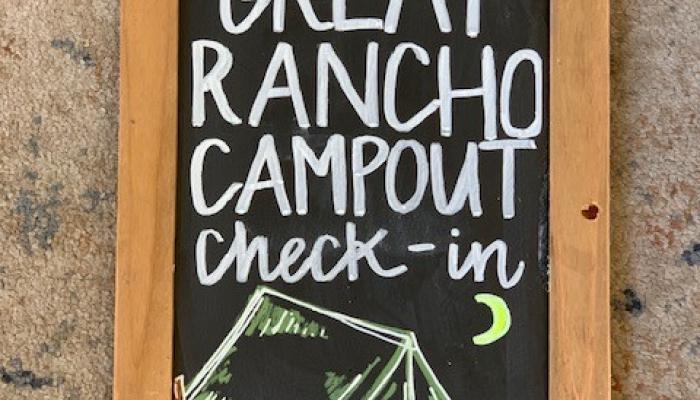 GREAT
RANCHO
CAMPOUT
check-in